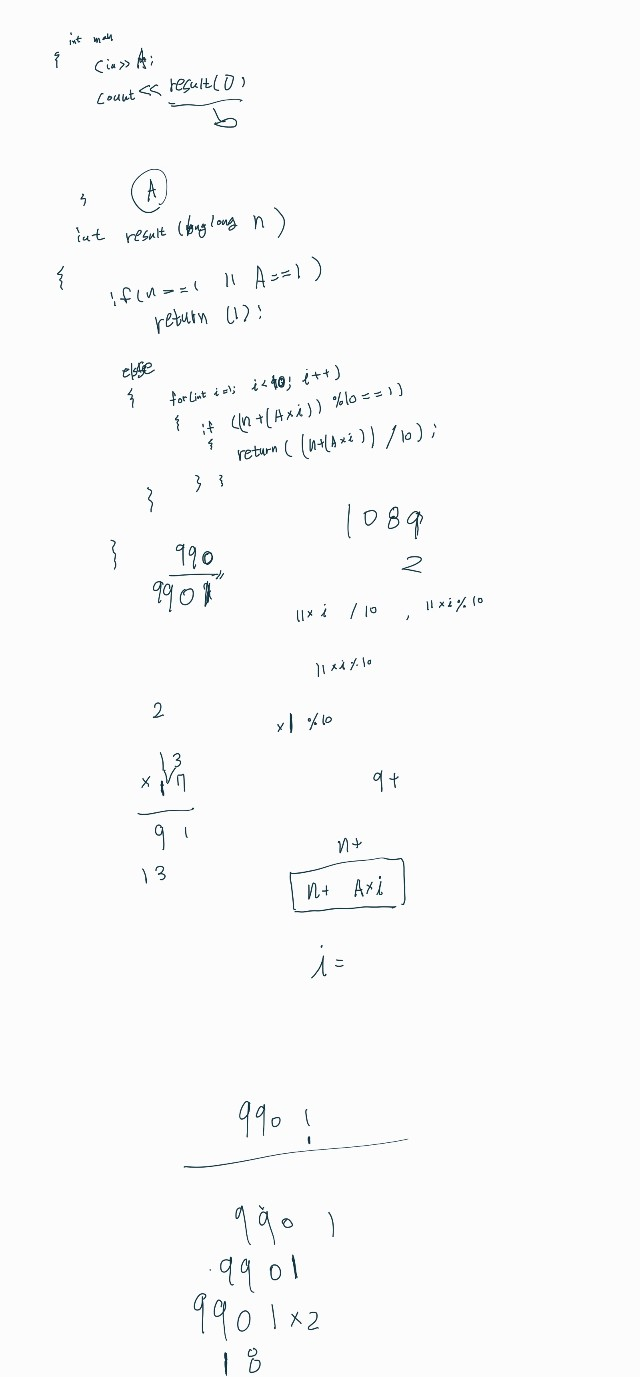 int main
{
cin >> A;
count << result(0)
}
A
int result (long long n)
{
if(n == 1 || A==1)
return (1);
else
{ for(int i=1; i<10; i++)
{ if ((n+(A×i)) %10==1)
{ return ( (n+(A×i)) /10);
} }
}
}
990
9901
1089
2
11×i /10 , 11×i%10
11×i%10
×1 %10
2
13
×7
91
13
9+
n+
n+ A×i
i=
990 1
990 1
9901
9901×2
18